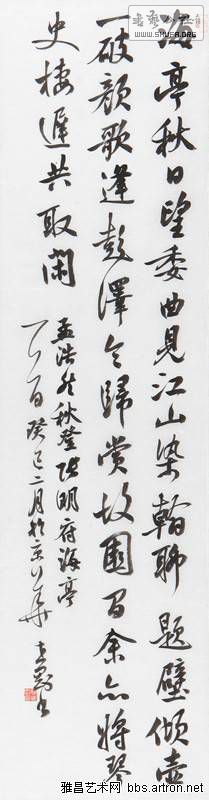 海亭秋日望委曲見江山染翰聊題壁傾壺
一破顏歌逢彭澤令歸賞故園間余亦將琴
史棲遲共取閑
孟浩然秋登張明府海亭
一首癸巳二月於京華
WWW.SHUFA.ORG
雅昌艺术网 bbs.artron.net